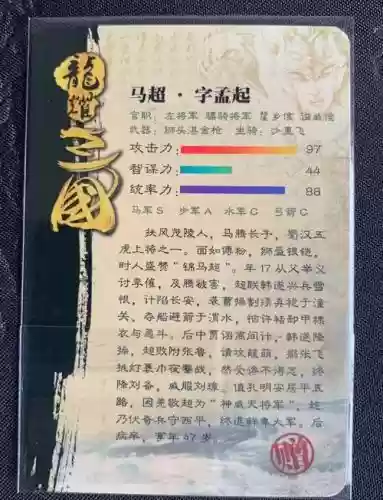 龍耀三國
马超·字孟起
官职：左将军 骠骑将军 斄乡侯 谥威侯
武器：狮头湛金枪 坐骑：沙里飞
攻击力： 97
智谋力： 44
统率力： 88
马军S 步军A 水军C 弓箭C
扶风茂陵人，马腾长子，蜀汉五
虎上将之一。面如傅粉，狮盔银铠，
时人盛赞"锦马超"。年17从父举义
讨李傕，及腾被害，超联韩遂兴兵雪
恨，计陷长安，杀曹操割须弃袍于潼
关、夺船避箭于渭水，
衣与恶斗。后中贾诩离间计，韩遂降
操，超败附张鲁。请攻葭萌，据张飞
挑灯裹巾夜鏖战，
降刘备，威服刘璋。值孔明安居平五
路，因羌敬超为"神威天将军"，超
乃伏奇兵守西平，终退鲜卑大军。后
病卒，享年47岁。